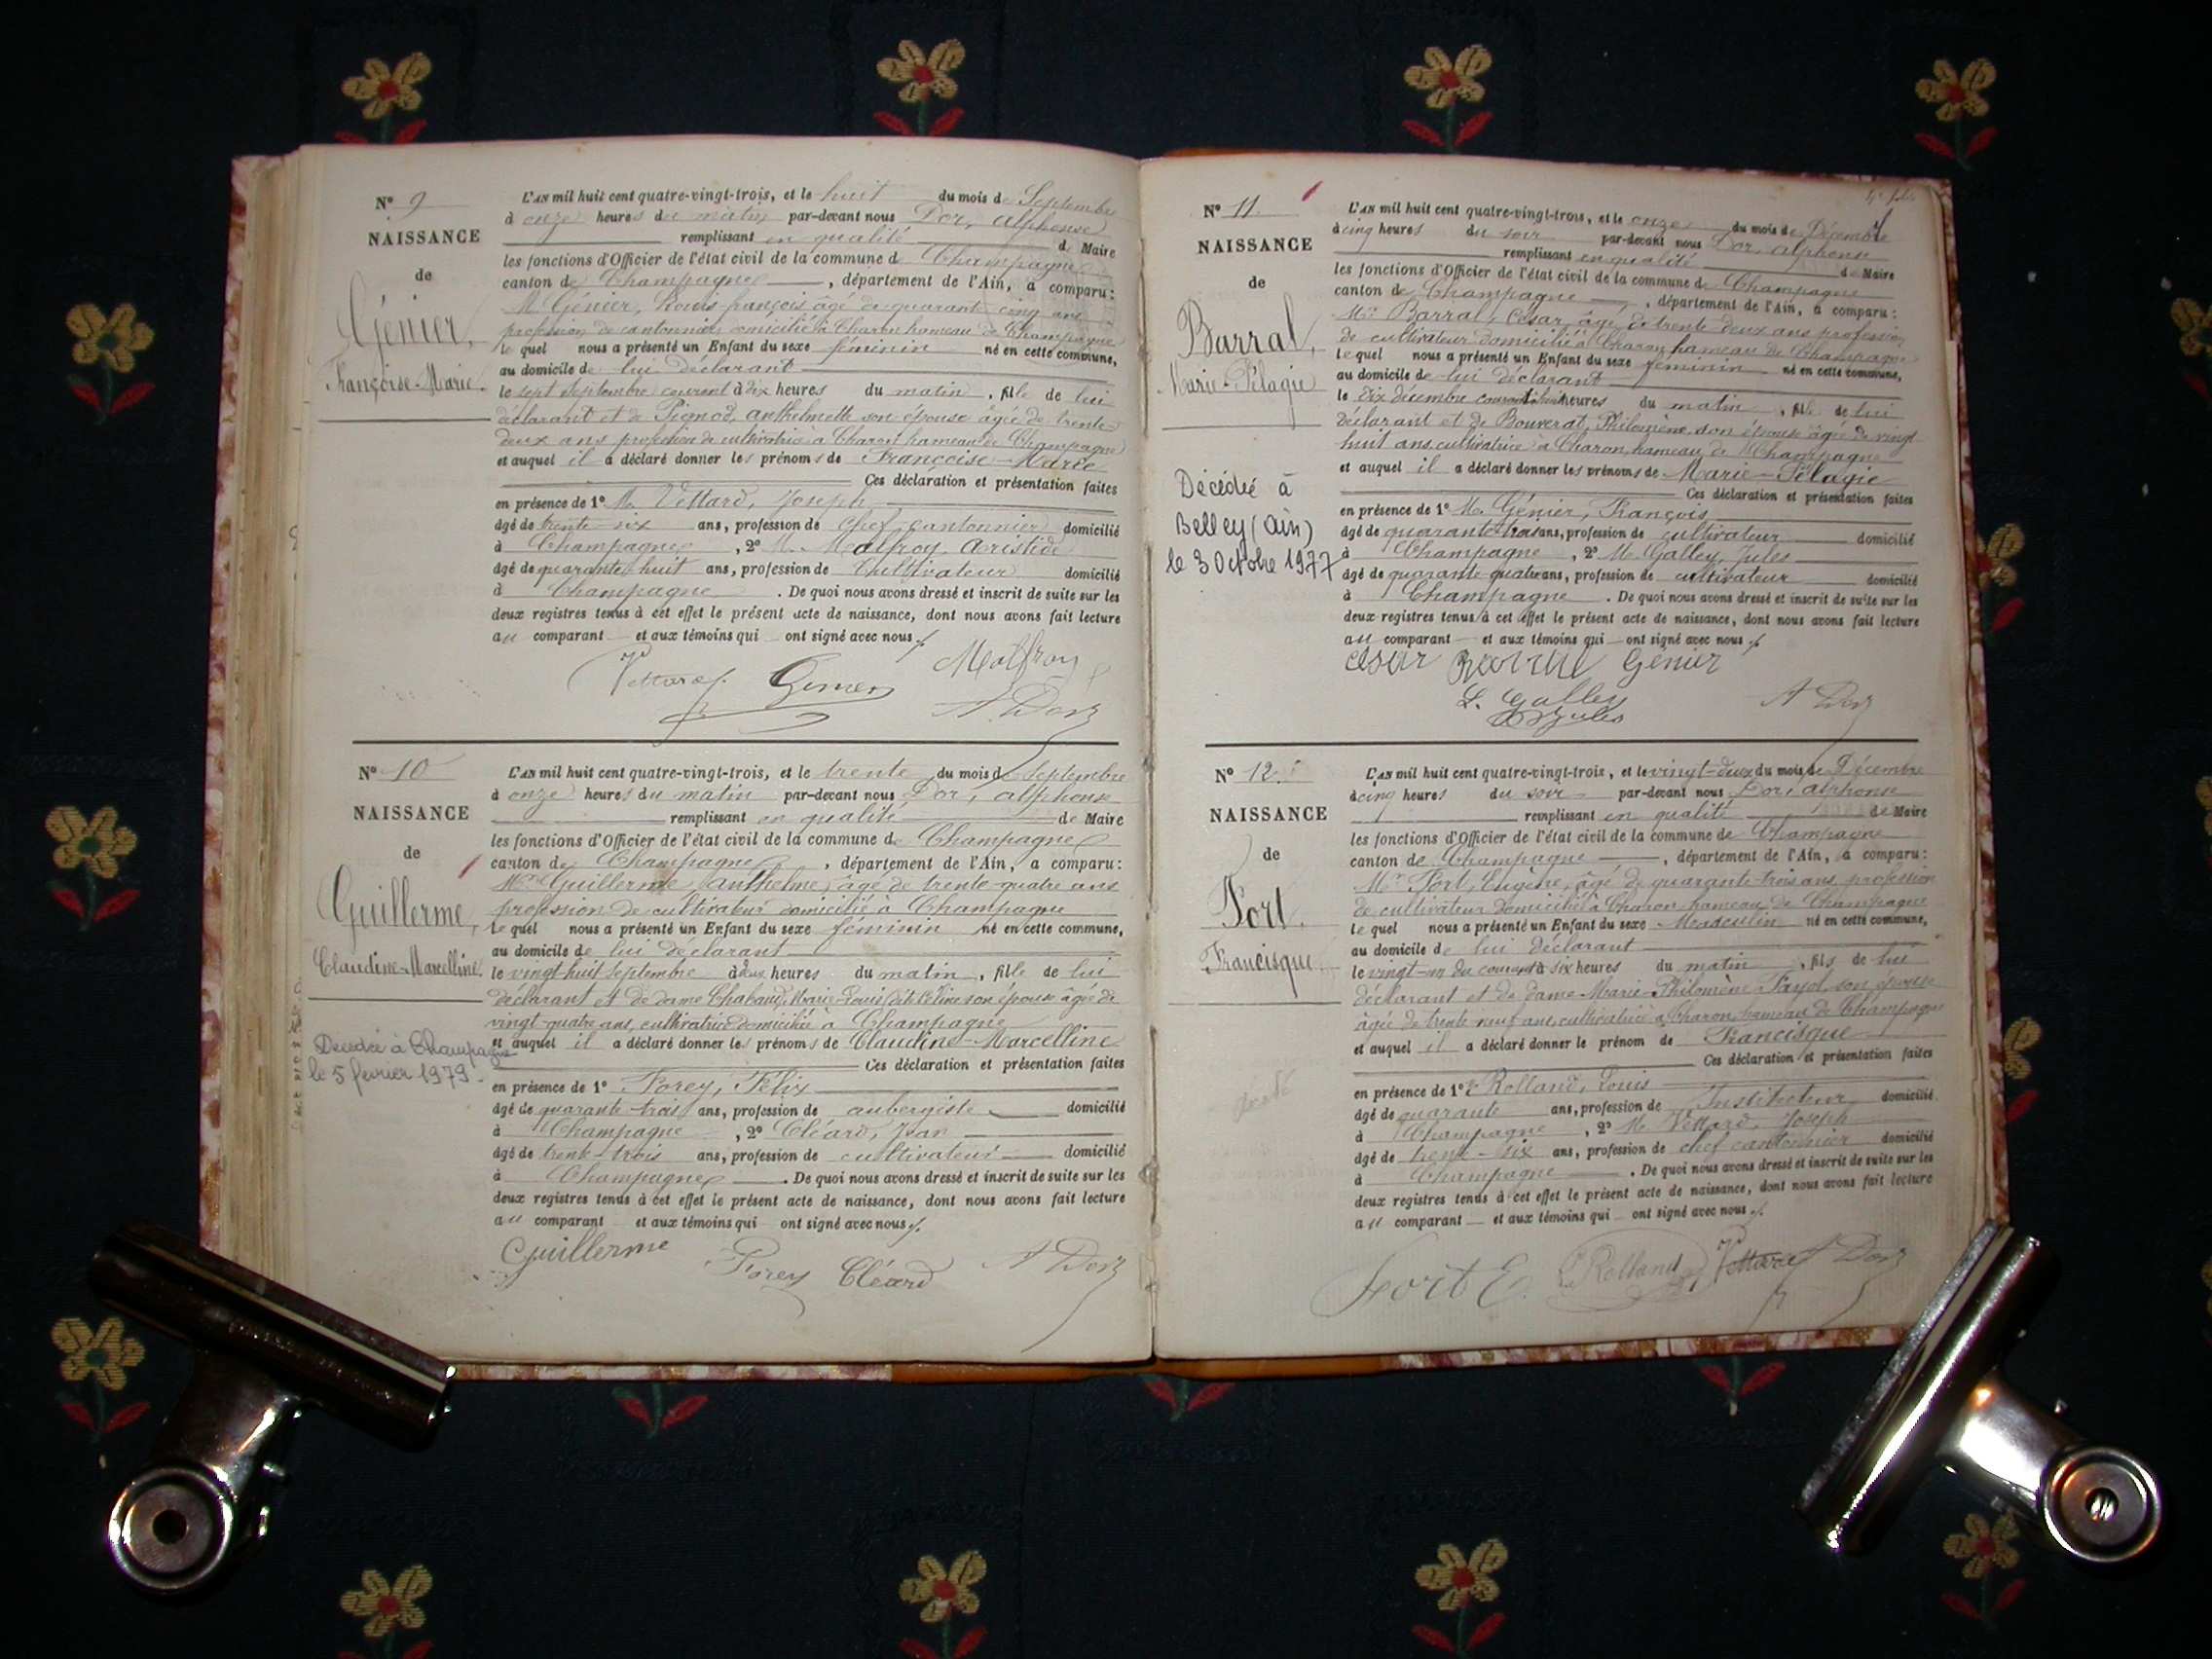 N° 9
NAISSANCE
de
Génier,
Françoise-Marie.
L'AN mil huit cent quatre-vingt-trois, et le huit du mois de Septembre
à onze heures du matin par-devant nous Dor, alphonse
remplissant en qualité de Maire
les fonctions d'Officier de l'état civil de la commune de Champagne
canton de Champagne, département de l'Ain, a comparu:
M. Génier, Louis-françois âgé de quarante cinq ans
profession de cantonnier domicilié à Charon hameau de Champagne
le quel nous a présenté un Enfant du sexe féminin né en cette commune,
au domicile de lui déclarant
le sept Septembre courant à dix heures du matin, fille de lui
déclarant et de Pignod, anthelmette son épouse âgée de trente-
deux ans profession de cultivatrice à Charon hameau de Champagne
et auquel il a déclaré donner les prénoms de Françoise-Marie
Ces déclaration et présentation faites
en présence de 1° M. Vettard, Joseph
âgé de trente-six ans, profession de chef cantonnier domicilié
à Champagne, 2° M. Malfroy Aristide
âgé de quarante huit ans, profession de Cultivateur domicilié
à Champagne. De quoi nous avons dressé et inscrit de suite sur les
deux registres tenus à cet effet le présent acte de naissance, dont nous avons fait lecture
au comparant et aux témoins qui ont signé avec nous
Vettard J. Genier Malfroy
A Dor
N° 10
NAISSANCE
de
Guillerme,
Claudine-Marcelline.
Décédée à Champagne
le 5 fevrier 1979
L'AN mil huit cent quatre-vingt-trois, et le trente du mois de Septembre
à onze heures du matin par-devant nous Dor, alphonse
remplissant en qualité de Maire
les fonctions d'Officier de l'état civil de la commune de Champagne
canton de Champagne, département de l'Ain, a comparu:
Mr Guillerme anthelme, âgé de trente-quatre ans
profession de cultivateur domicilié à Champagne
le quel nous a présenté un Enfant du sexe féminin né en cette commune,
au domicile de lui déclarant
le vingt huit Septembre à deux heures du matin, fille de lui
déclarant et de dame Chaband, Marie-Louise dite Céline son épouse âgée de
vingt-quatre ans, cultivatrice domiciliée à Champagne
et auquel il a déclaré donner les prénoms de Claudine-Marcelline
Ces déclaration et présentation faites
en présence de 1° Forey, Félix
âgé de quarante-trois ans, profession de aubergiste domicilié
à Champagne, 2° Cléard, Jean
âgé de trente-trois ans, profession de cultivateur domicilié
à Champagne. De quoi nous avons dressé et inscrit de suite sur les
deux registres tenus à cet effet le présent acte de naissance, dont nous avons fait lecture
au comparant et aux témoins qui ont signé avec nous
Guillerme Forey Cléard A Dor
N° 11
NAISSANCE
de
Barral,
Marie-Pélagie
Décédée à
Belley (Ain)
le 3 Octobre 1977
L'AN mil huit cent quatre-vingt-trois, et le onze du mois de Décembre
à cinq heures du soir par-devant nous Dor, alphonse
remplissant en qualité de Maire
les fonctions d'Officier de l'état civil de la commune de Champagne
canton de Champagne, département de l'Ain, a comparu:
Mr Barral, César âgé de trente-deux ans profession
de cultivateur domicilié à Charon hameau de Champagne
le quel nous a présenté un Enfant du sexe féminin né en cette commune,
au domicile de lui déclarant
le dix décembre courant à huit heures du matin, fille de lui
déclarant et de Bouverat, Philomène son épouse âgée de vingt
huit ans, cultivatrice à Charon, hameau de Champagne
et auquel il a déclaré donner les prénoms de Marie-Pélagie
Ces déclaration et présentation faites
en présence de 1° M. Génier, François
âgé de quarante-trois ans, profession de cultivateur domicilié
à Champagne, 2° M. Galley, Jules
âgé de quarante-quatre ans, profession de cultivateur domicilié
à Champagne. De quoi nous avons dressé et inscrit de suite sur les
deux registres tenus à cet effet le présent acte de naissance, dont nous avons fait lecture
au comparant et aux témoins qui ont signé avec nous
César Barral Genier
Galley Jules A Dor
N° 12
NAISSANCE
de
Fort.
Francisque
L'AN mil huit cent quatre-vingt-trois, et le vingt-deux du mois de Décembre
à cinq heures du soir par-devant nous Dor, alphonse
remplissant en qualité de Maire
les fonctions d'Officier de l'état civil de la commune de Champagne
canton de Champagne, département de l'Ain, a comparu:
Mr Fort, Eugène, âgé de quarante-trois ans, profession
de cultivateur domicilié à Charon hameau de Champagne
le quel nous a présenté un Enfant du sexe Masculin né en cette commune,
au domicile de lui déclarant
le vingt-un du courant à six heures du matin, fils de lui
déclarant et de dame Marie-Philomène Fayol son épouse
âgée de trente neuf ans, cultivatrice à Charon hameau de Champagne
et auquel il a déclaré donner le prénom de Francisque
Ces déclaration et présentation faites
en présence de 1° Rolland, Louis
âgé de quarante ans, profession de Instituteur domicilié
à Champagne, 2° M. Vettard, Joseph
âgé de trente-six ans, profession de chef cantonnier domicilié
à Champagne. De quoi nous avons dressé et inscrit de suite sur les
deux registres tenus à cet effet le présent acte de naissance, dont nous avons fait lecture
au comparant et aux témoins qui ont signé avec nous
Fort E. Rolland Vettard A Dor